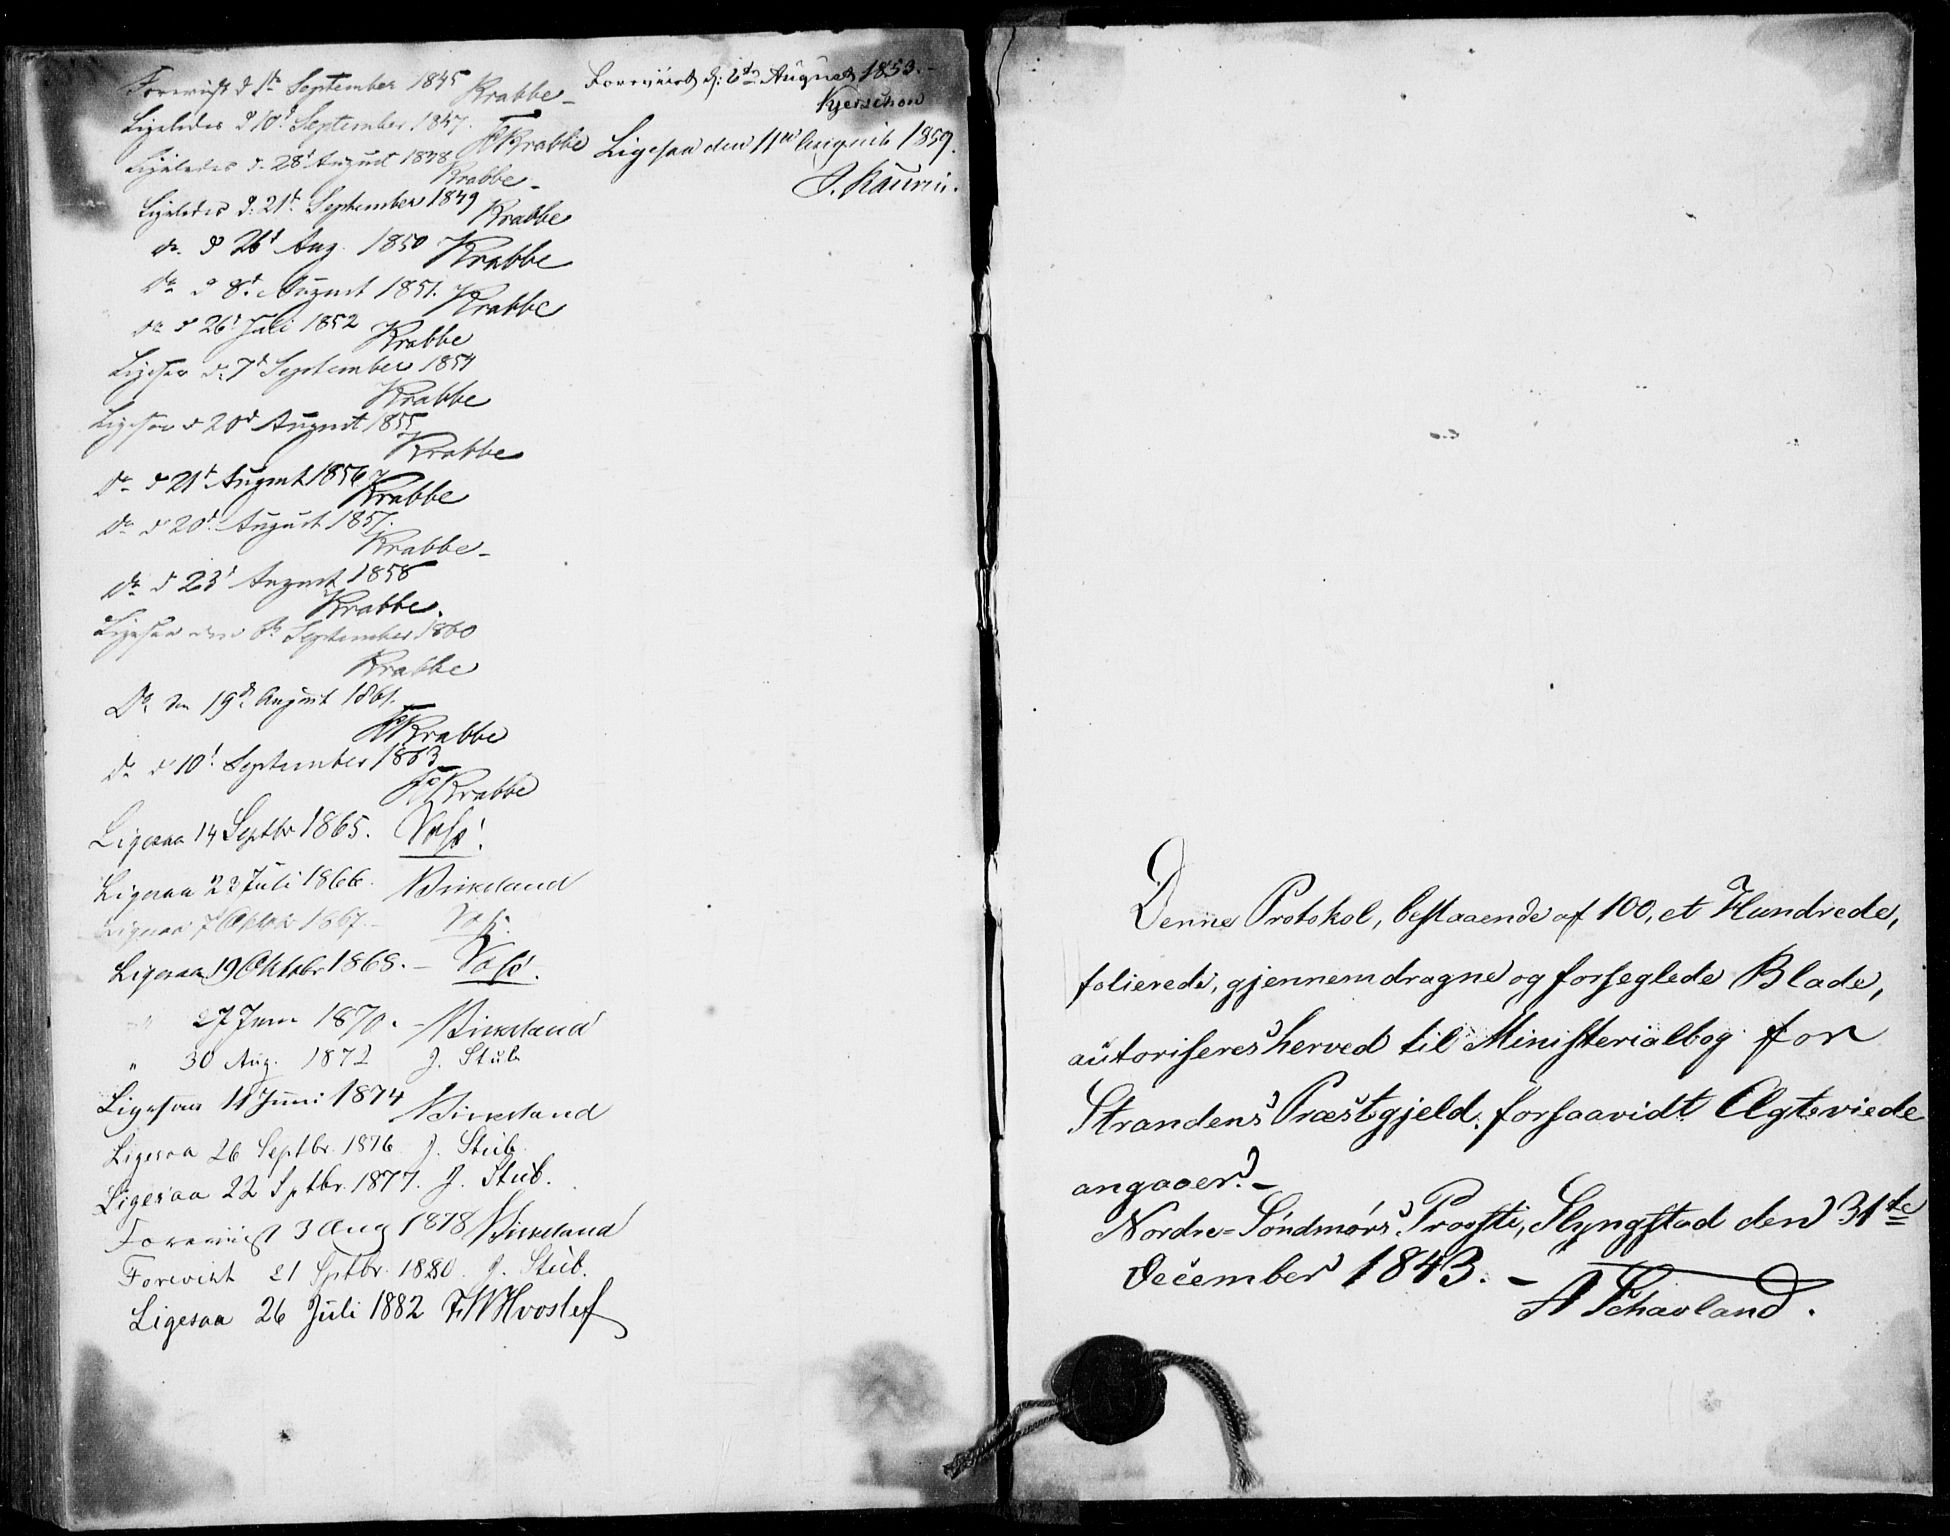 Foreviist d 1ste September 1845 Krabbe
Ligeledes d 10d September 1847. FKrabbe
Ligeledes d. 28d August 1848 Krabbe
Ligeledes d: 21d September 1849 Krabbe
do d 26d Aug. 1850 Krabbe
do d 8d August 1851. Krabbe
do d 26d Juli 1852 Krabbe
Ligesaa d. 7d September 1854
Krabbe
Ligesaa d 20d August 1855
Krabbe
do d 21d August 1856
Krabbe
do d 20d August 1857.
Krabbe
do d 23d August 1858
Krabbe.
Ligesaa den 6te September 1860
Krabbe
Do den 19de August 1861.
FKrabbe
do d 10d September 1863
FKrabbe
Ligesaa 14 Septbr 1865.
Ligesaa 23 Juli 1866. Birkeland
Ligesaa 7 Oktobr 1867.
Ligesaa 19 Oktobr 1868. –
" 27 Juni 1870. – Birkeland
" 30 Aug. 1872 J. Stub
Ligesaa 11 Juni 1874 Birkeland
Ligesaa 26 Septbr. 1876 J. Stub.
Ligesaa 22 Sptbr. 1877. J. Stub.
Foreviist 3 Aug 1878 Birkeland
Forevist 21 Sptbr. 1880. J. Stub.
Ligesaa 26 Juli 1882 FWHvoslef
Foreviist d: 2den August 1853. –
Kjerschow
Ligesaa den 11te August 1859.
J. Kaurin.
Denne Protokol, bestaaende af 100, et Hundrede,
folierede, gjennemdragne og forseglede Blade,
autoriseres herved til Ministerialbog for
Strandens Præstegjeld, forsaavidt Ægteviede
angaaer. –
Nordre-Söndmörs Provsti, Slyngstad den 31te
December 1843. –
A Schavland.